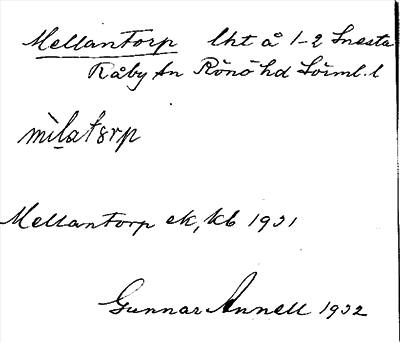 Mellantorp lht å 1-2 Snesta
Råby sn Rönö hd Sörml. l
mìlatɔrp
Mellantorp ek, kb 1931
Gunnar Annell 1932